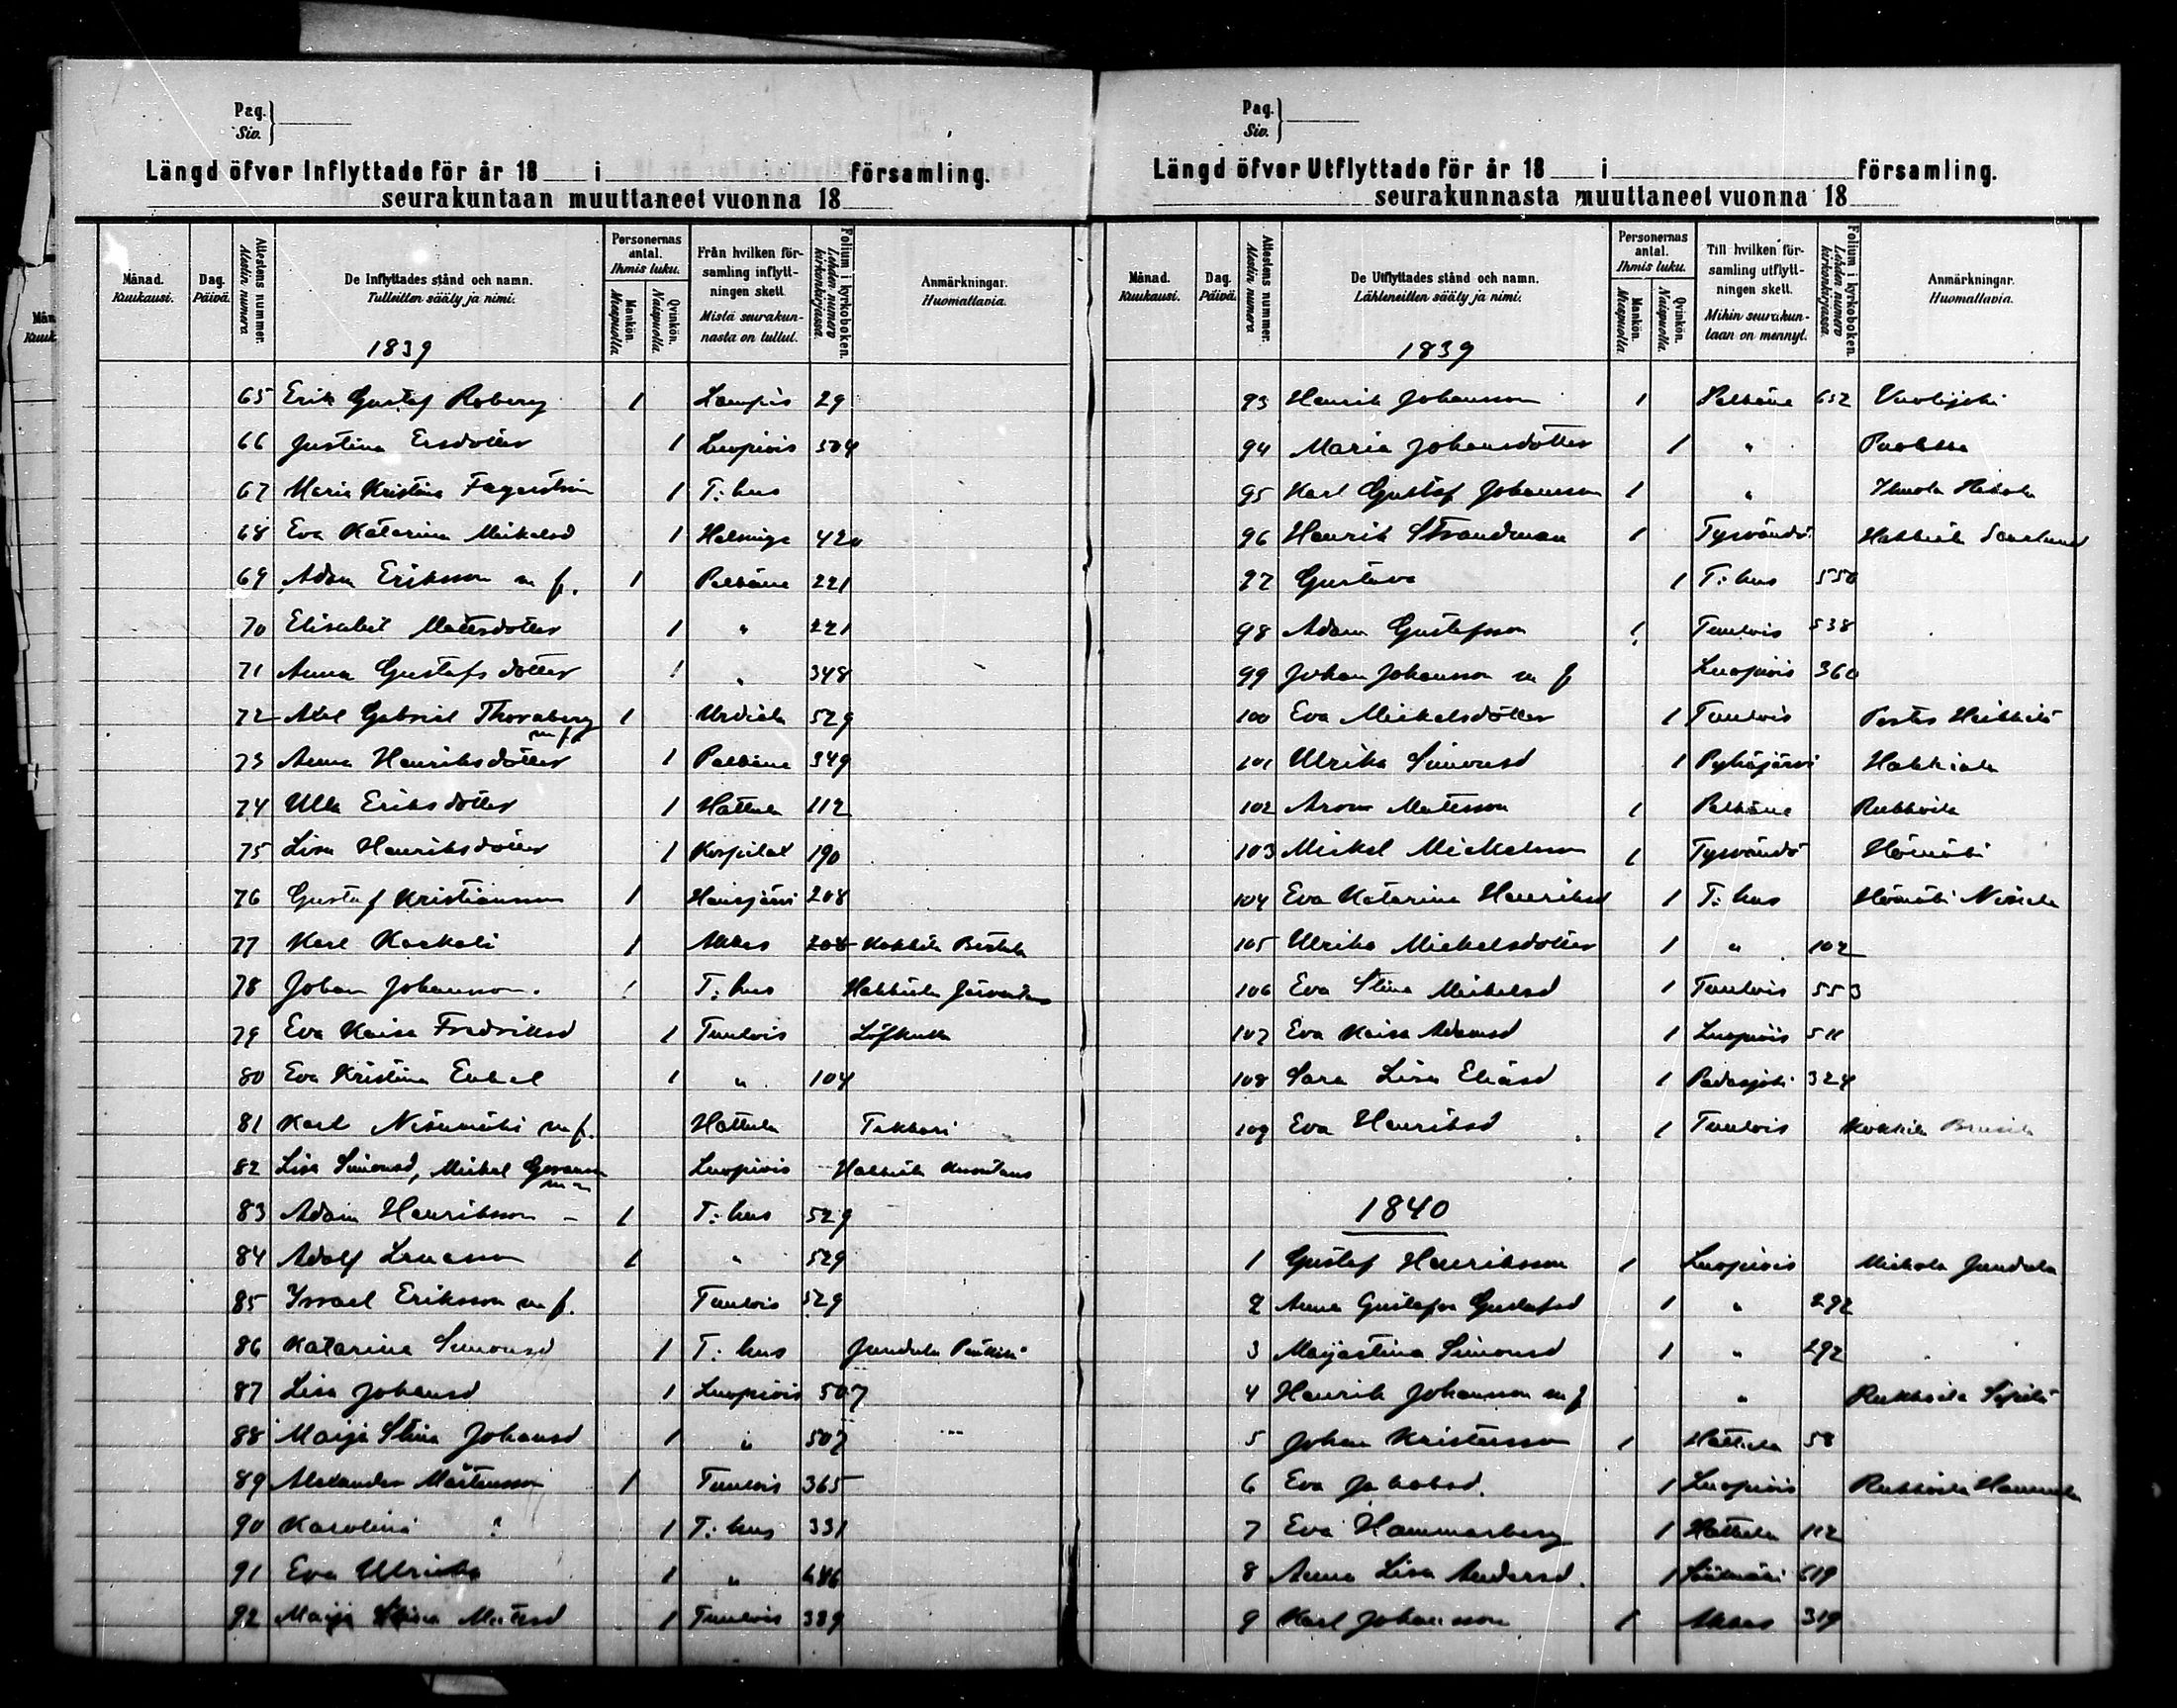 Pag.
Siv.
Längd öfver Inflyttade för år 18 i församling.
seurakuntaan muuttaneet vuonna 18
Månad. Kuukausi.
Dag. Päivä.
Attestens nummer. Alestin numero
De Inflyttades stånd och namn. Tulleitten sääly ja nimi.
Personernas antal. Ihmis luku.
Mankön. Miespuolia
Qvinkön. Naispuolia.
Från hvilken församling inflyttningen skett. Mistä seurakunnasta on tullut.
Folium i kyrkoboken. Lehden numero kirkonkirjassa
Anmärkningar. Huomattavia.
1839
65 Erik Gustaf Roberg 1 Lampis 29
66 Justina Ersdotter 1 Luopiois 504
67 Maria Kristina Fagerström 1 T: hus
68 Eva Katarina Mickelsd 1 Helsinge 420
69 Adam Eriksson m f. 1 Pelkäne 221
70 Elisabet Matsdotter 1 " 221
71 Anna Gustafsdotter 1 " 348
72 Axel Gabriel Thornberg m f. 1 Urdiala 529
73 Anna Henriksdotter 1 Pelkäne 349
74 Ulla Eriksdotter 1 Hattula 112
75 Lisa Henriksdotter 1 Hospital 190
76 Gustaf Kristiansson 1 Hausjärvi 208
77 Karl Kaskali 1 Akkas 208 Kokkila
78 Johan Johansson. 1 T: hus Hakkiala
79 Eva Kaisa Fredriksd 1 Tuulois Löfkulla
80 Eva Kristina Enkel 1 " 104
81 Karl Nisumäki m f. Hattula Tekkari
82 Lisa Simonsd, Mickel Luopiois Hakkiala
83 Adam Henriksson – 1 T: hus 529
84 Adolf 1 " 529
85 Israel Eriksson m f. Tuulois 529
86 Katarina Simonsd 1 T: hus Jundala
87 Lisa Johansd 1 Luopiois 507
88 Maija Stina Johansd 1 " 507
89 Alexander Mårtensson 1 Tuulois 365
90 Karolina 1 T: hus 331
91 Eva Ulrika 1 " 446
92 Maija Stina Matsd 1 Tuulois 389
Pag.
Siv.
Längd öfver Utflyttade för år 18 i församling.
seurakunnasta muuttaneet vuonna 18
Månad. Kuukausi.
Dag. Päivä.
Attestens nummer. Alestin numero
De Utflyttades stånd och namn. Lähteneitten sääly ja nimi.
Personernas antal. Ihmis luku.
Mankön. Miespuolia
Qvinkön. Naispuolia.
Till hvilken församling utflyttningen skett. Mihin seurakuntaan on mennyt.
Folium i kyrkoboken. Lehden numero kirkonkirjassa
Anmärkningar. Huomattavia.
1839
93 Henrik Johansson 1 Pelkäne 652 Vuolijoki
94 Maria Johansdotter 1 "
95 Karl Gustaf Johansson 1 "
96 Henrik Strandman 1 Tyrvändö Hakkiala
97 Gustava 1 T: hus 550
98 Adam Gustafsson 1 Tuulois 538
99 Johan Johansson m f Luopiois 360
100 Eva Mickelsdotter 1 Tuulois Heikkilä
101 Ulrika Simonsd 1 Pyhäjärvi Hakkiala
102 Aron Matsson 1 Pelkäne Rukkoila
103 Mickel Mickelsson 1 Tyrvändö
104 Eva Katarina Henriksd 1 T: hus
105 Ulrika Mickelsdotter 1 " 102
106 Eva Stina Mickelsd 1 Tuulois 553
107 Eva Kaisa Adamsd 1 Luopiois 511
108 Sara Lisa Eliasd 1 Padasjoki 324
109 Eva Henriksd 1 Tuulois Kokkila
1840
1 Gustaf Henriksson 1 Luopiois Mickola Jundala
2 Anna Gustafva Gustafsd 1 " 292
3 Maijastina Simonsd 1 " 292
4 Henrik Johansson m f " Rukkoila
5 Johan Kristersson 1 Hattula 58
6 Eva Jakobsd. 1 Luopiois Rukkoila
7 Eva Hammarberg 1 Hattula 112
8 Anna Lisa Andersd. 1 619
9 Karl Johansson 1 Akkas 319